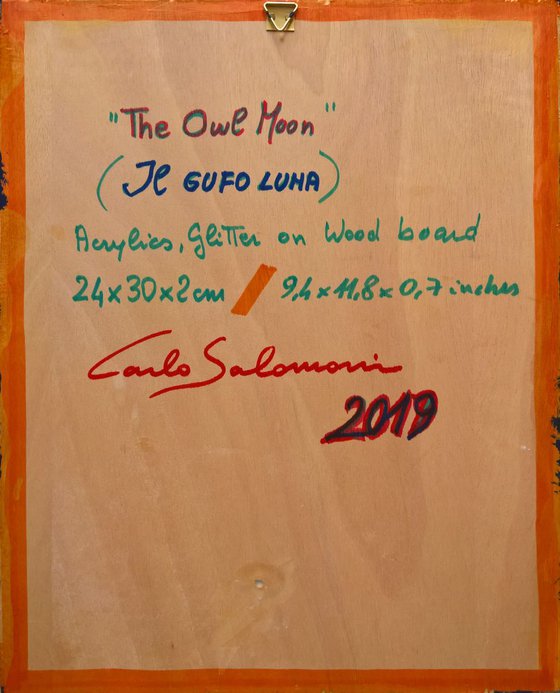 "The Owl Moon"
(Il GUFO LUNA)
Acrylics, Glitter on Wood board
24x30x2cm / 9,4x11,8x0,7 inches
Carlo Salomoni
2019